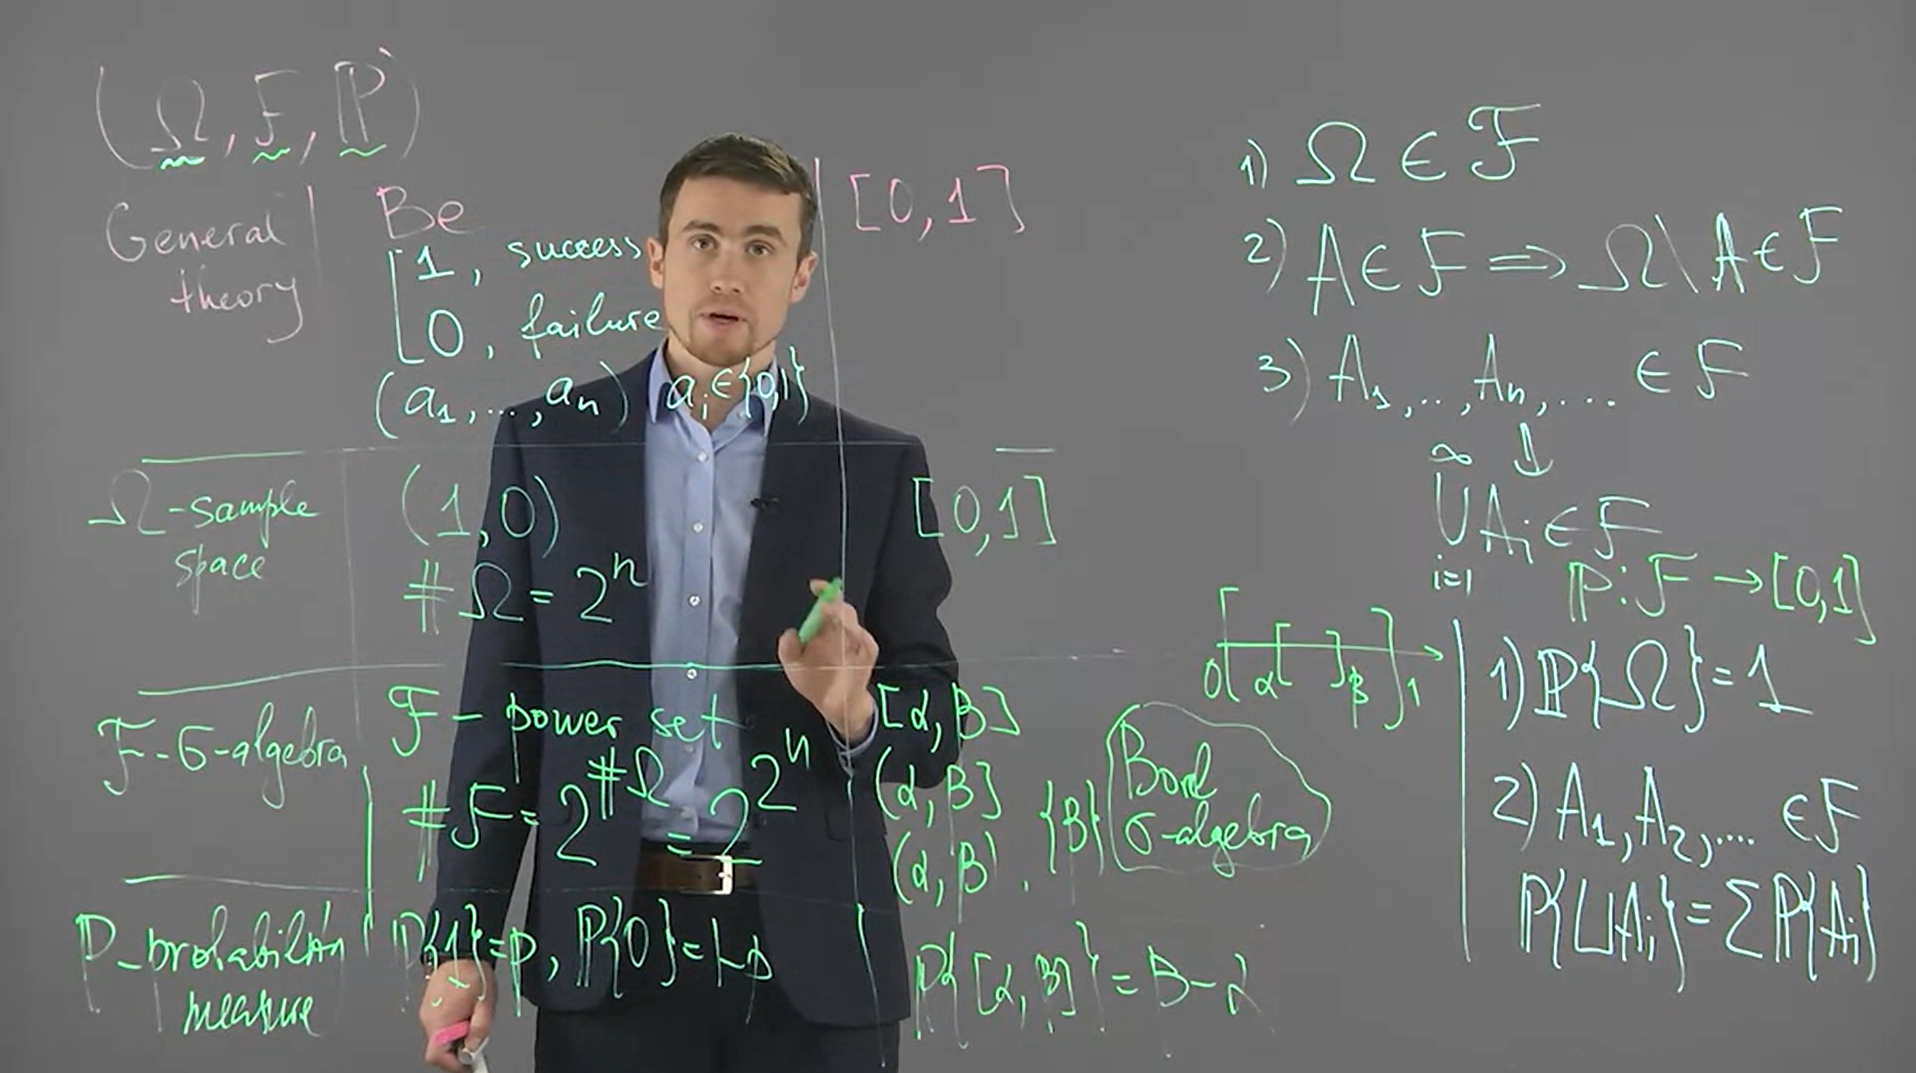 (Ω, F, ℙ)
General theory
Be
[1, success
[0, failure
(a₁, ..., aₙ) aᵢ ∈ {0,1}
[0,1]
Ω-sample space
(1,0)
#Ω = 2ⁿ
[0,1]
F-σ-algebra
F - power set
#F = 2^#Ω = 2^2ⁿ
[α, β]
(α, β]
(α, β), {β}
Borel
σ-algebra
P-probability
measure
ℙ{1} = p, ℙ{0} = 1-p
ℙ{[α, β]} = β-α
1) Ω ∈ F
2) A ∈ F ⇒ Ω\A ∈ F
3) A₁, .., Aₙ, ... ∈ F
⇓
∞
∪ Aᵢ ∈ F
i=1
ℙ: F → [0,1]
0[ α[ ]β ]1
1) ℙ{Ω} = 1
2) A₁, A₂, .... ∈ F
ℙ{⊔Aᵢ} = Σℙ{Aᵢ}